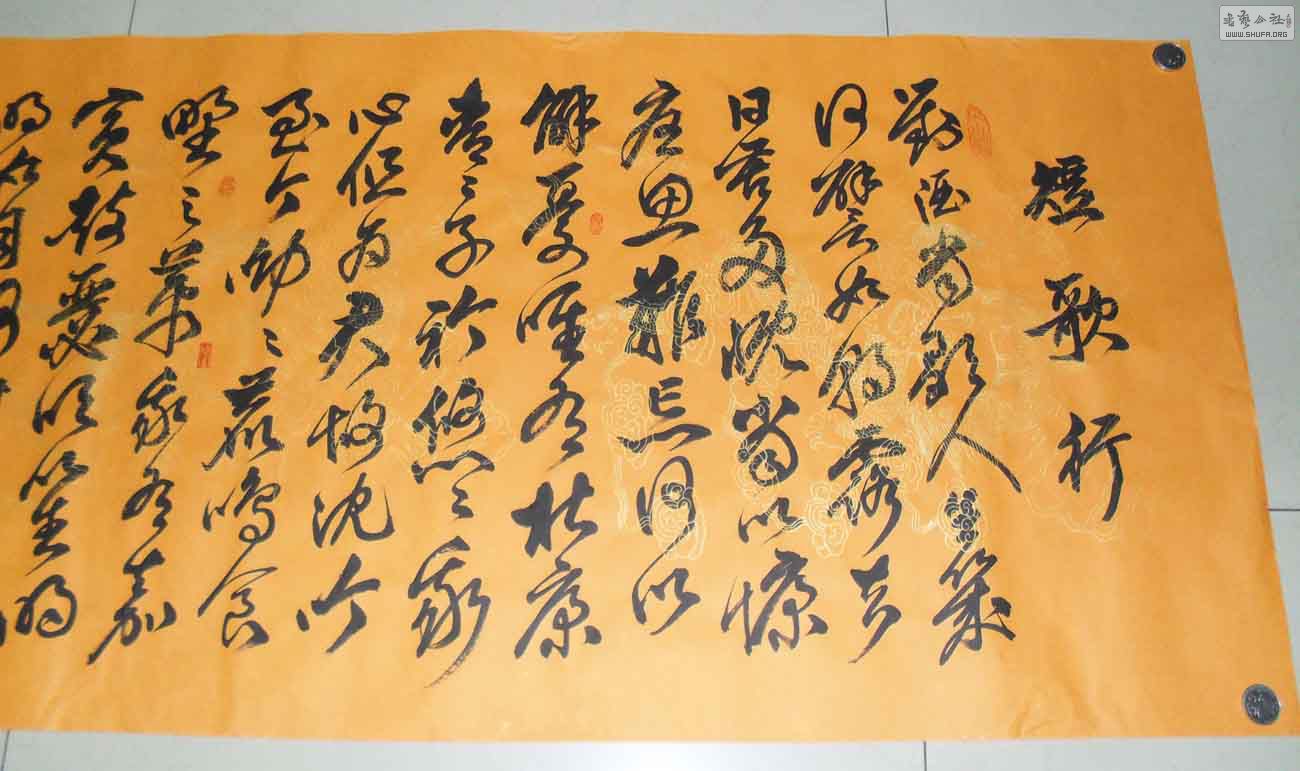 短歌行
對酒當歌人生幾
何譬如朝露去
日苦多慨當以慷
思難忘何以
解憂唯有杜康
青々子衿悠々我
心但為君故沈吟
至今呦々鹿鳴食
野之苹我有嘉
賓鼓瑟吹笙明
書藝公社
WWW.SHUFA.ORG